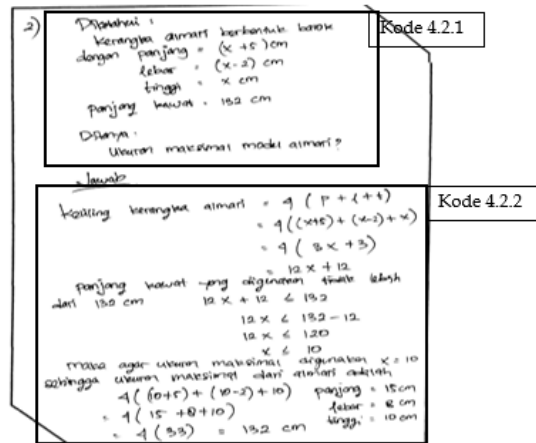 2) Diketahui :
Kerangka almari berbentuk balok
dengan panjang = (x +5) cm
lebar = (x-2) cm
tinggi = x cm
panjang kawat = 132 cm
Ditanya :
Ukuran maksimal model almari ?
Kode 4.2.1
Jawab
Keliling kerangka almari = 4 ( p + l + t)
= 4 ((x+5) + (x-2) + x)
= 4 ( 3x +3)
= 12x + 12
Kode 4.2.2
panjang kawat yang digunakan tidak lebih
dari 132 cm 12x + 12 ≤ 132
12x ≤ 132 - 12
12x ≤ 120
x ≤ 10
maka agar ukuran maksimal digunakan x = 10
sehingga ukuran maksimal dari almari adalah
4 ( (10+5) + (10-2) + 10) panjang = 15 cm
= 4 ( 15 +8 +10) lebar = 8 cm
= 4 ( 33) = 132 cm tinggi = 10 cm